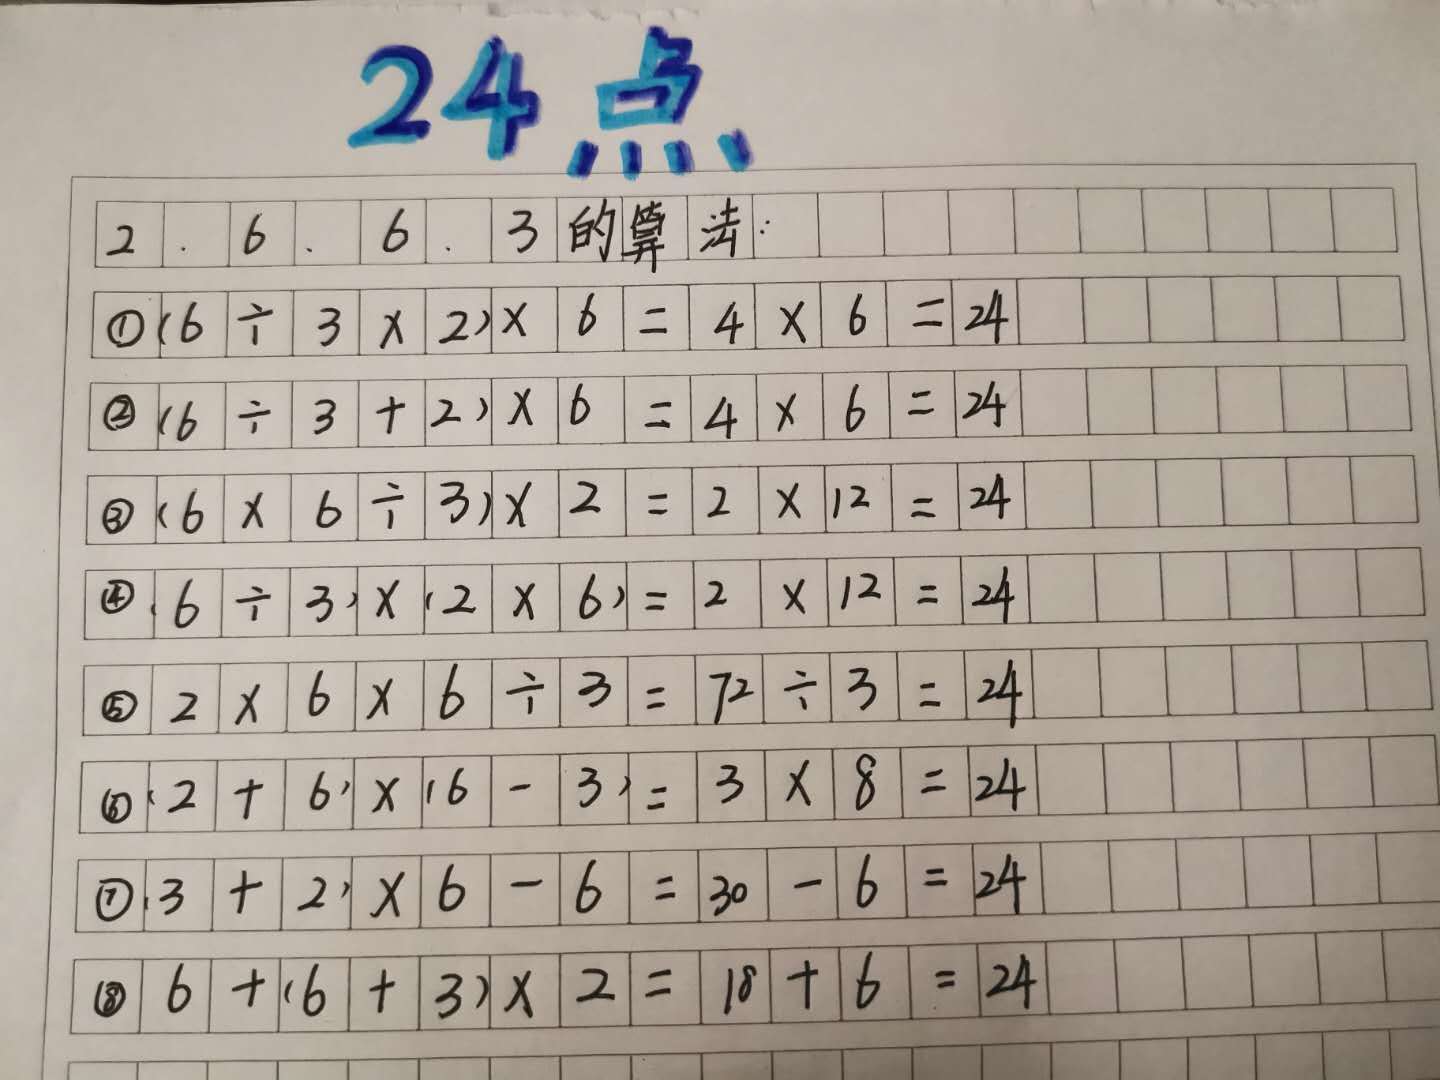 24点
2.6.6.3的算法:
①(6÷3×2)×6=4×6=24
②(6÷3+2)×6=4×6=24
③(6×6÷3)×2=2×12=24
④(6÷3)×(2×6)=2×12=24
⑤2×6×6÷3=72÷3=24
⑥(2+6)×(6-3)=3×8=24
⑦(3+2)×6-6=30-6=24
⑧6+(6+3)×2=18+6=24